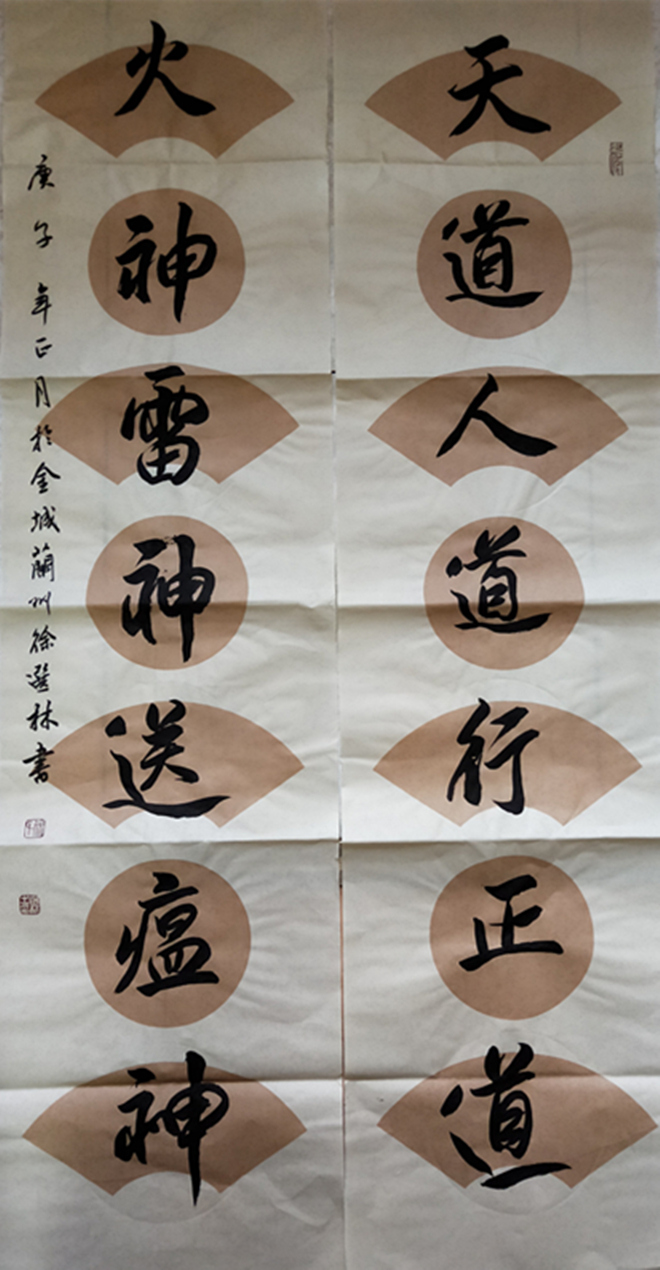 天道人道行正道
火神雷神送瘟神
庚子年正月於金城蘭州徐選林書